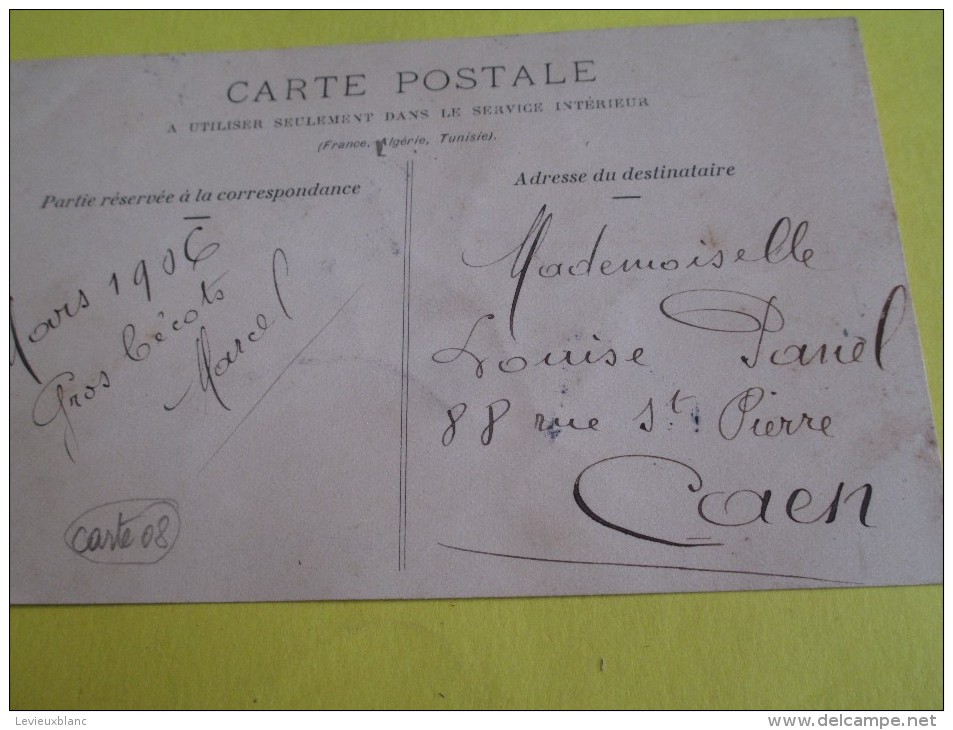 CARTE POSTALE
A UTILISER SEULEMENT DANS LE SERVICE INTÉRIEUR
(France, Algérie, Tunisie).
Partie réservée à la correspondance
Mars 1906
Gros Bécots
Marcel
carte 08
Adresse du destinataire
Mademoiselle
Louise Panel
88 rue St Pierre
Caen
Levieuxblanc
www.delcampe.net